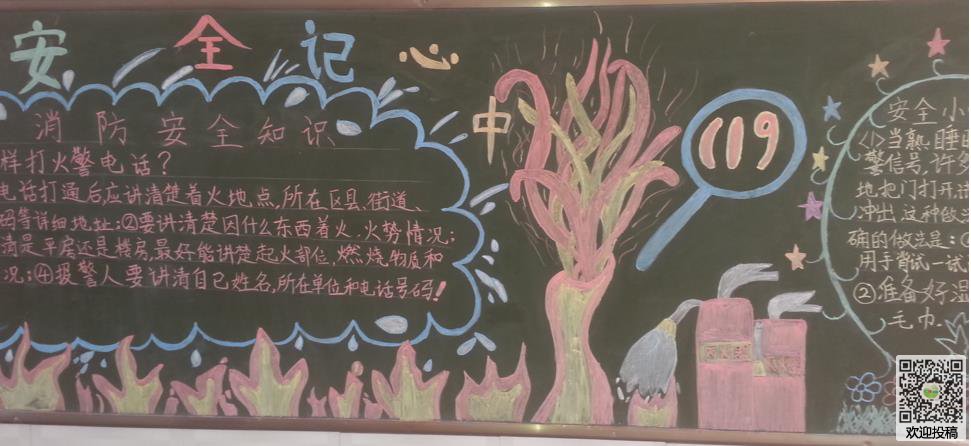 安全记心中
消防安全知识
样打火警电话?
电话打通后,应讲清楚着火地点,所在区县、街道、
码等详细地址;②要讲清楚因什么东西着火、火势情况;
清是平房还是楼房,最好能讲楚起火部位,燃烧物质和
况;④报警人要讲清自己姓名,所在单位和电话号码!
119
安全小
<1>当熟睡
警信号,许多
地把门打开,
冲出,这种做法
确的做法是:
用手背试一试
②准备好湿
毛巾.
欢迎投稿